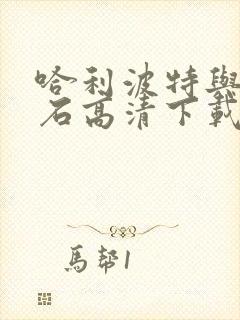 哈利波特與
石高清下載
馬幫1